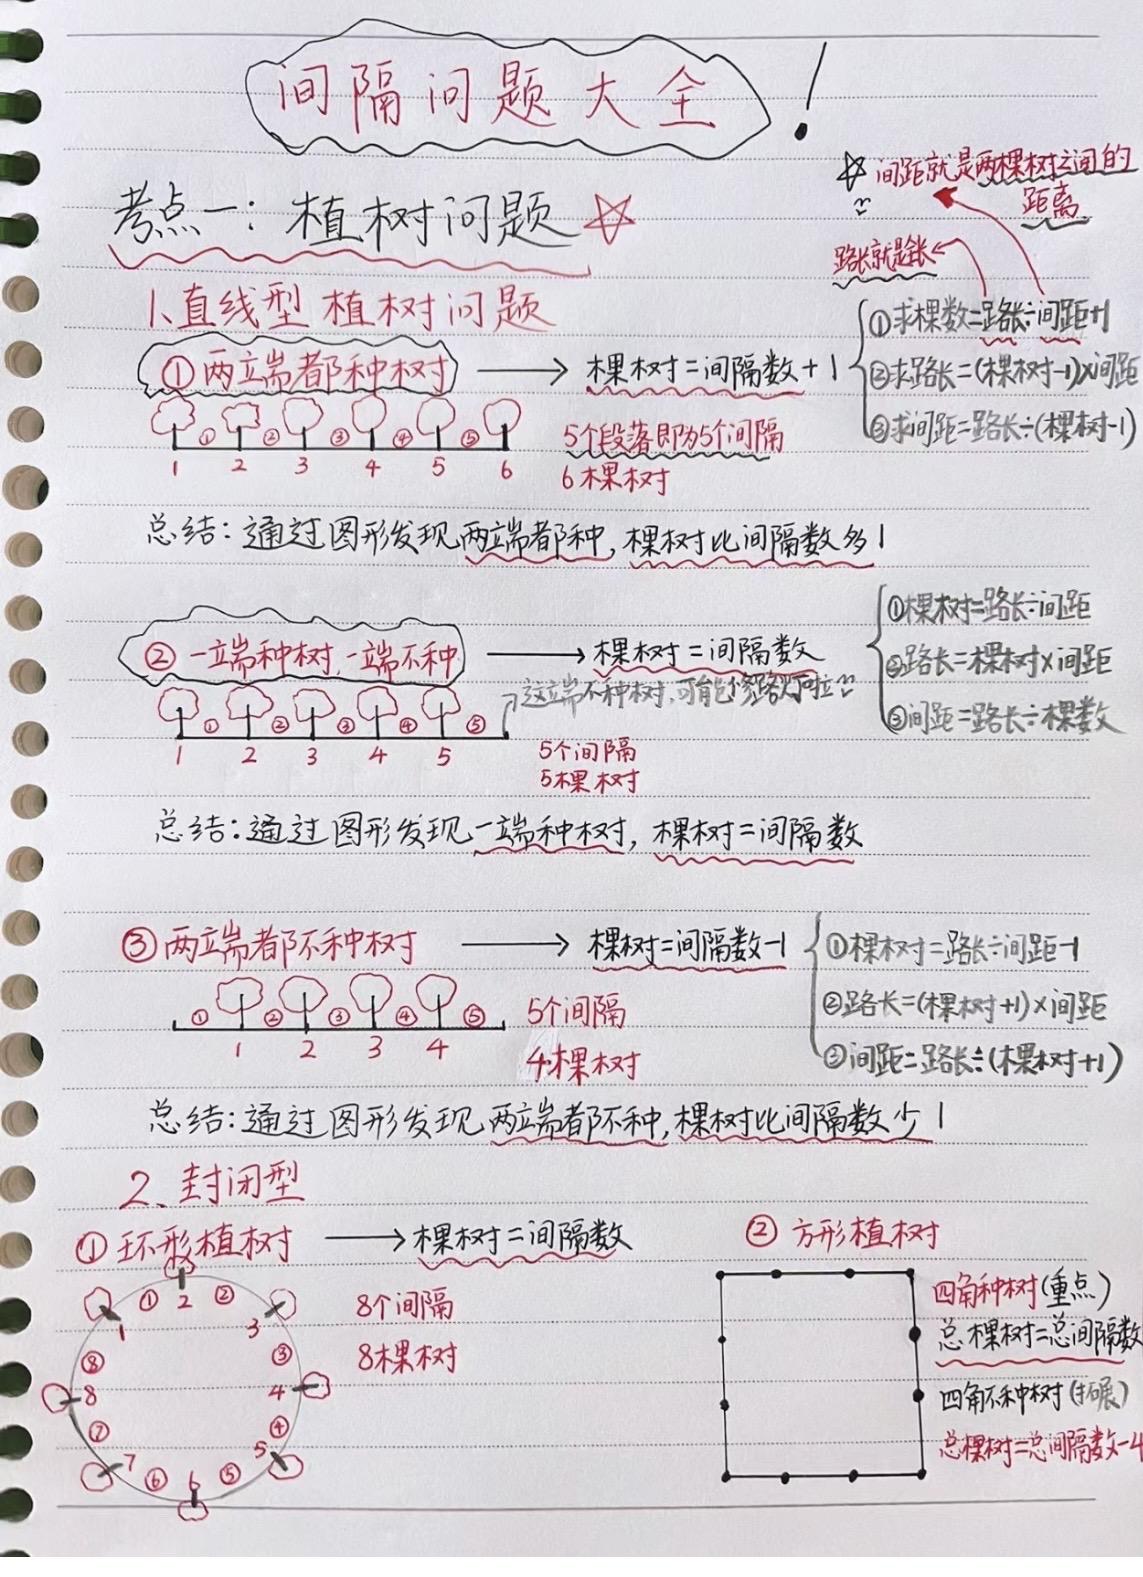 间隔问题大全!
☆间距就是两棵树之间的
距离
考点一:植树问题☆
路长就是全长
1、直线型植树问题
①两端都种树 → 棵树=间隔数+1
①求棵数=路长÷间距+1
②求路长=(棵树-1)×间距
③求间距=路长÷(棵树-1)
① ② ③ ④ ⑤
1 2 3 4 5 6
5个段落即为5个间隔
6棵树
总结:通过图形发现两端都种,棵树比间隔数多1
②一端种树,一端不种 → 棵树=间隔数
①棵树=路长÷间距
②路长=棵树×间距
③间距=路长÷棵数
这端不种树,可能
① ② ③ ④ ⑤
1 2 3 4 5
5个间隔
5棵树
总结:通过图形发现一端种树,棵树=间隔数
③两端都不种树 → 棵树=间隔数-1
①棵树=路长÷间距-1
②路长=(棵树+1)×间距
③间距=路长÷(棵树+1)
① ② ③ ④ ⑤
1 2 3 4
5个间隔
4棵树
总结:通过图形发现两端都不种,棵树比间隔数少1
2、封闭型
①环形植树 → 棵树=间隔数
① 2 ②
1 3
⑧ ③
8 4
⑦ ④
7 5
⑥ 6 ⑤
8个间隔
8棵树
②方形植树
四角种树(重点)
总棵树=总间隔数
四角不种树(拓展)
总棵树=总间隔数-4